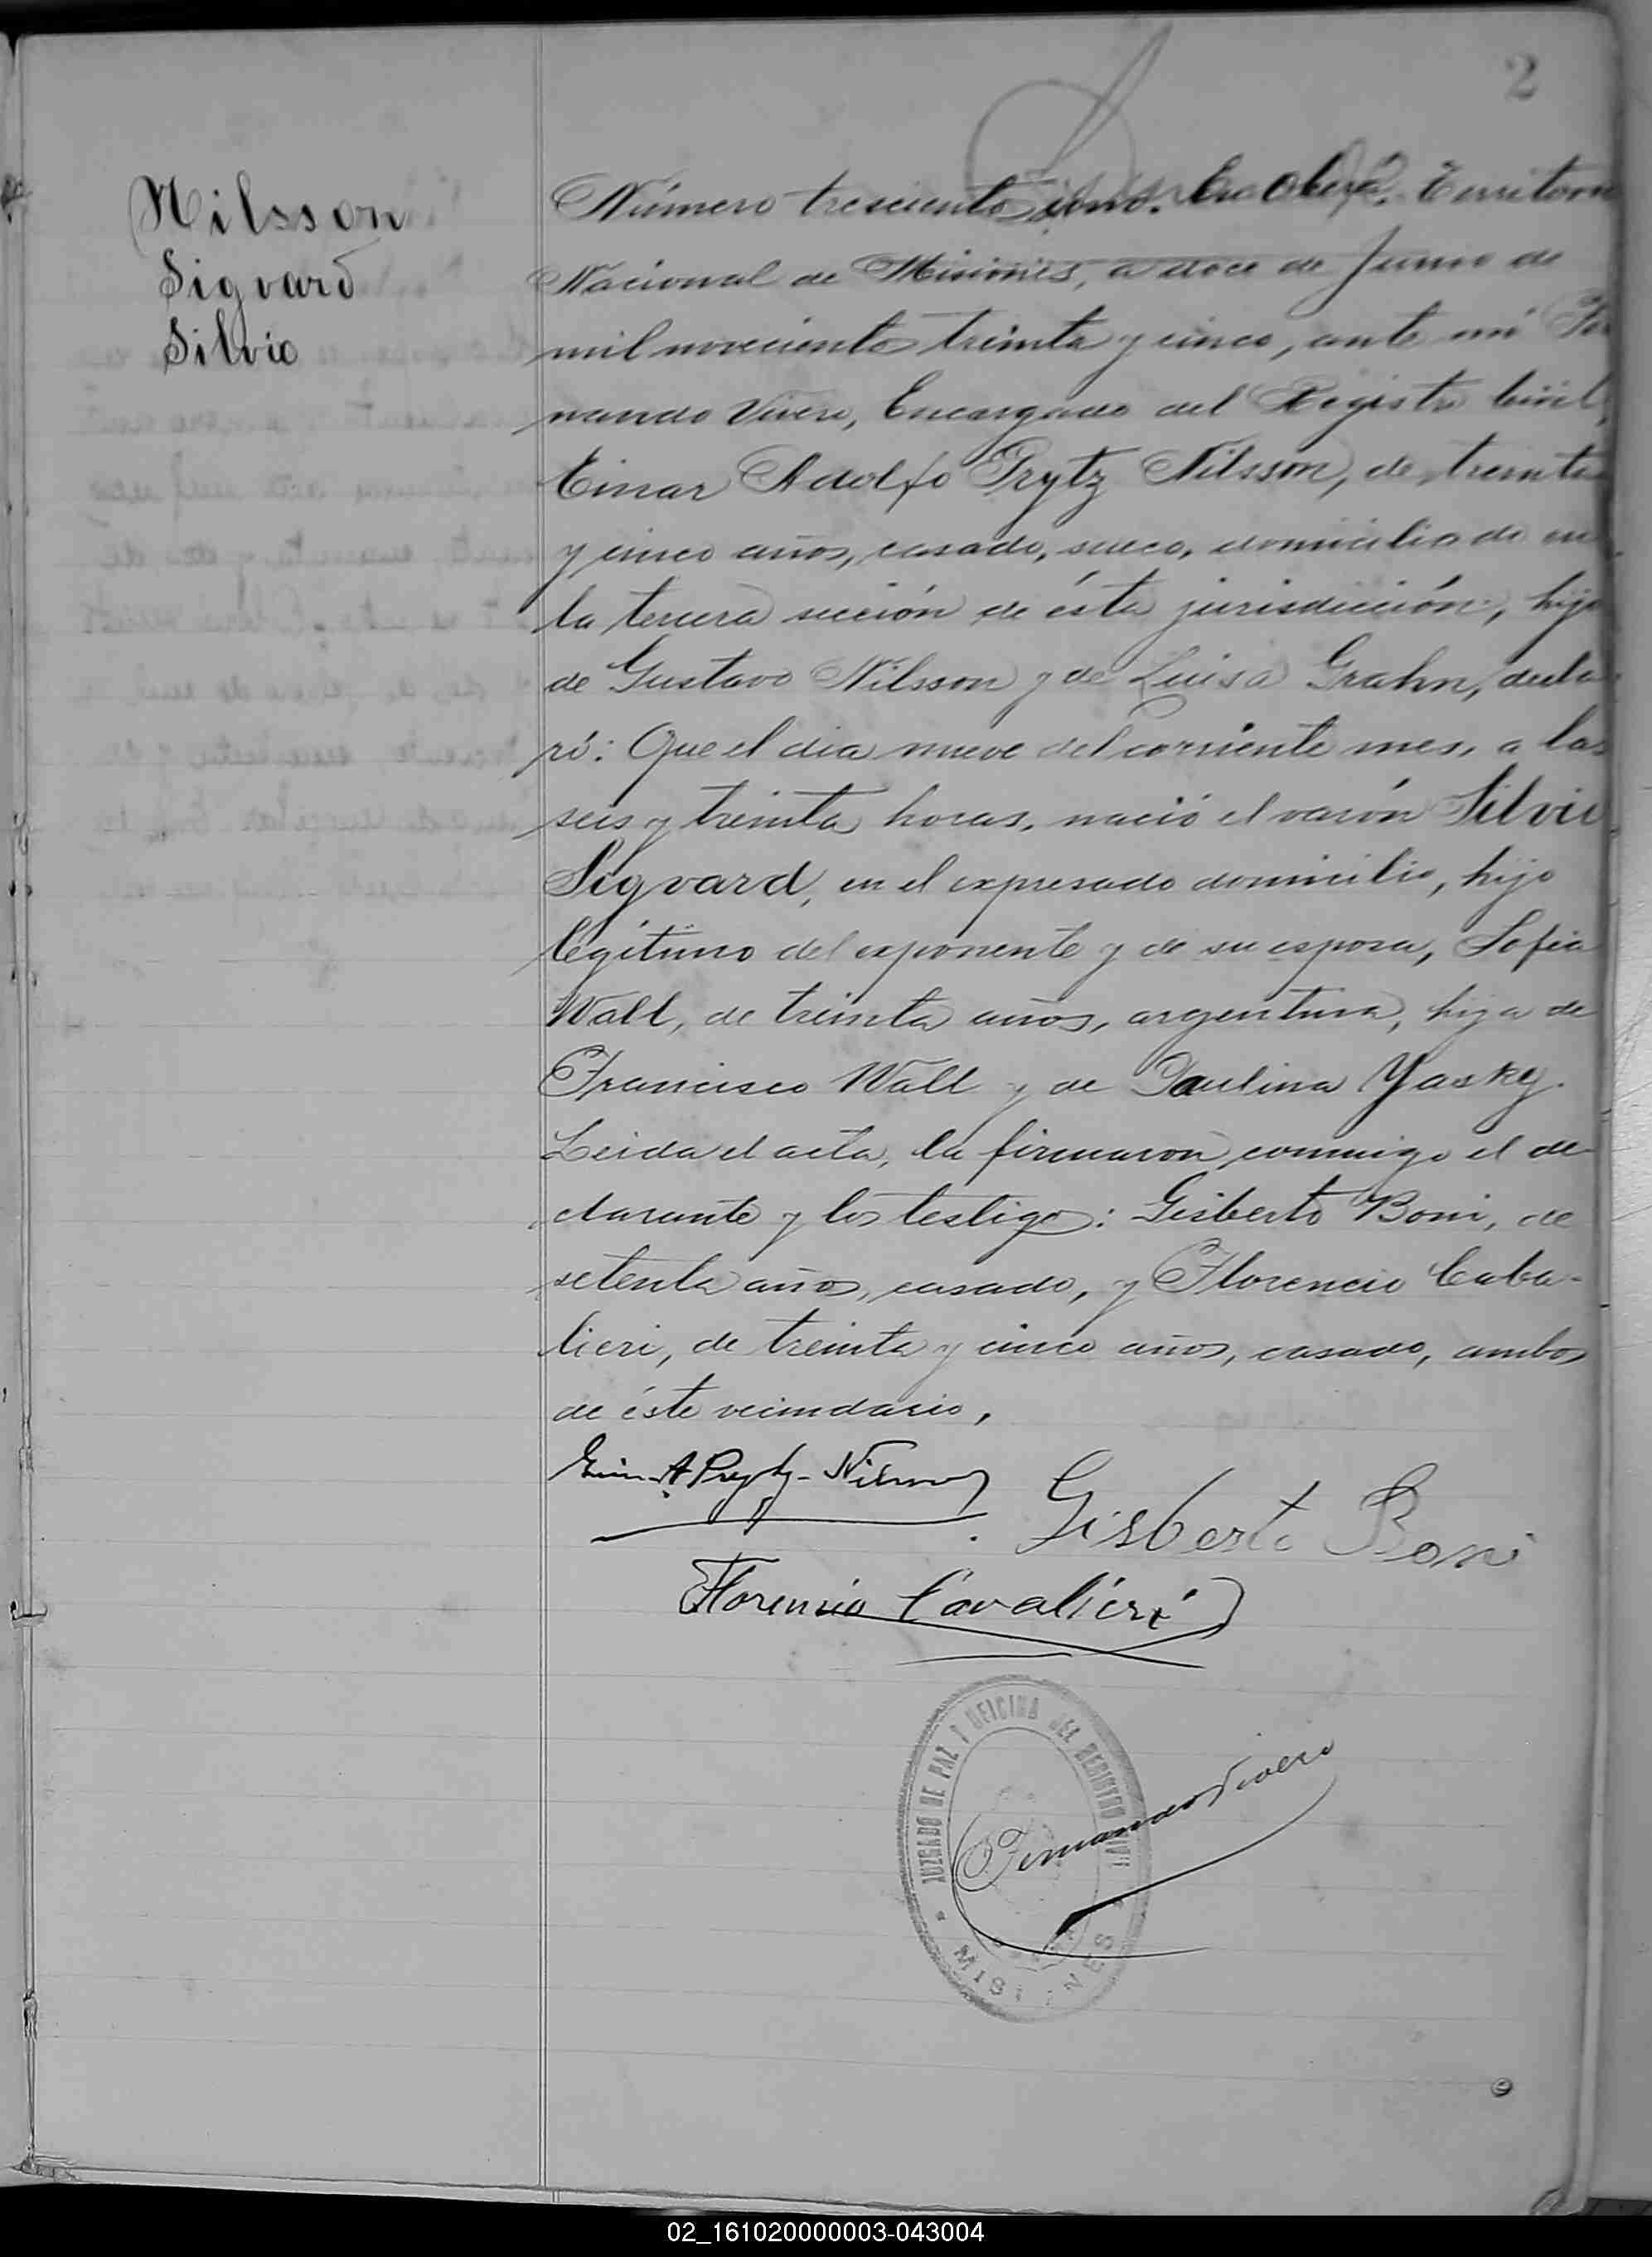 2
Nilsson
Sigvard
Silvio
Número trescientos uno. En Oberá, Territorio
Nacional de Misiones, a doce de Junio de
mil novecientos treinta y cinco, ante mí Fer
nando Vivero, Encargado del Registro Civil,
Einar Adolfo Prytz Nilsson, de treinta
y cinco años, casado, sueco, domiciliado en
la tercera sección de ésta jurisdicción, hijo
de Gustavo Nilsson y de Luisa Grahn, decla
ró: Que el día nueve del corriente mes, a las
seis y treinta horas, nació el varón Silvio
Sigvard, en el expresado domicilio, hijo
legítimo del exponente y de su esposa, Sofía
Wall, de treinta años, argentina, hija de
Francisco Wall y de Paulina Yasky.
Leída el acta, la firmaron conmigo el de-
clarante y los testigos: Gisberto Boni, de
setenta años, casado, y Florencio Caba-
lieri, de treinta y cinco años, casado, ambos
de éste vecindario.
Einar A. Prytz-Nilsson
Gisberto Boni
Florencio Cavalieri
JUZGADO DE PAZ Y OFICINA DEL REGISTRO CIVIL
Fernando Vivero
MISIONES
02_161020000003-043004